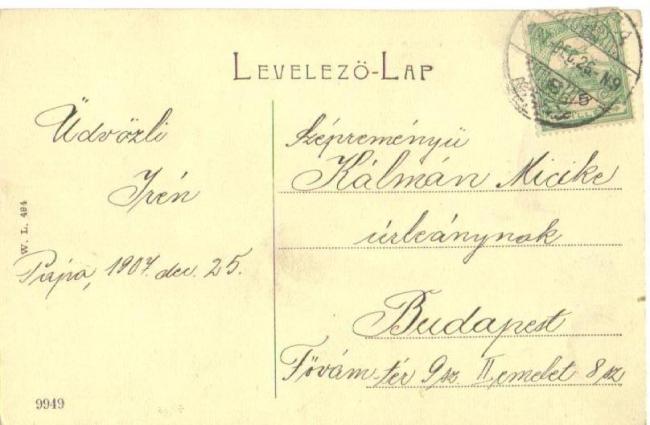 LEVELEZŐ-LAP
Üdvözli
Irén
Pápa, 1907. dec. 25.
W. L. 494
9949
Szépreményü
Kálmán Micike
úrleánynak
Budapest
Fővám tér 9 sz. II emelet 8 sz
DEC. 26. N9